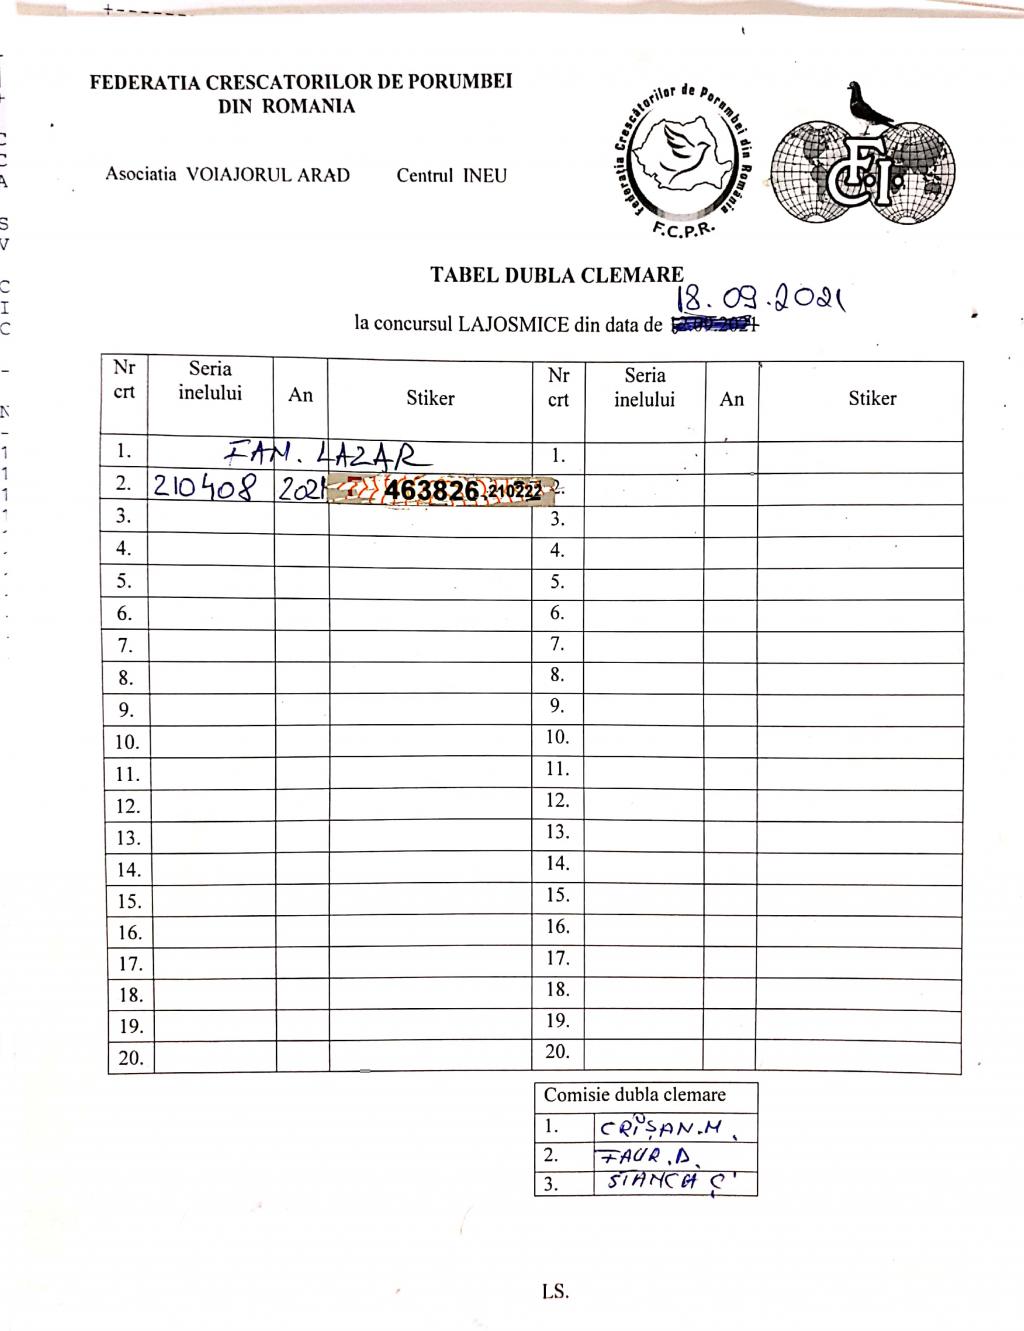 FEDERATIA CRESCATORILOR DE PORUMBEI
DIN ROMANIA
Asociatia VOIAJORUL ARAD Centrul INEU
Federația Crescătorilor de Porumbei din România
F.C.P.R.
F.C.I.
TABEL DUBLA CLEMARE
18.09.2021
la concursul LAJOSMICE din data de
Nr crt Seria inelului An Stiker Nr crt Seria inelului An Stiker
1. FAM. LAZAR 1.
2. 210408 2021 463826.210222 2.
3. 3.
4. 4.
5. 5.
6. 6.
7. 7.
8. 8.
9. 9.
10. 10.
11. 11.
12. 12.
13. 13.
14. 14.
15. 15.
16. 16.
17. 17.
18. 18.
19. 19.
20. 20.
Comisie dubla clemare
1. CRIȘAN.M.
2. FAUR.D.
3.
LS.